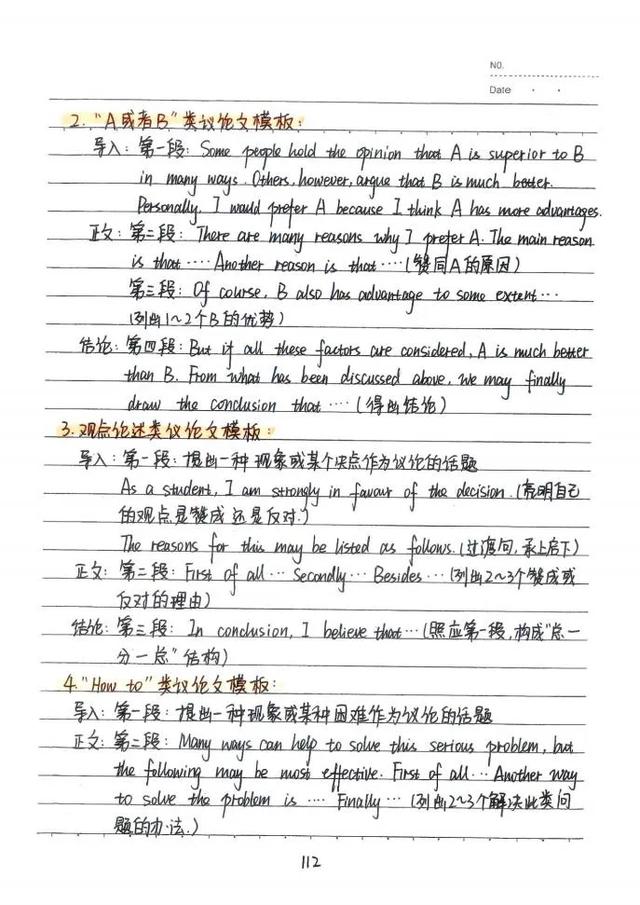 NO.
Date
2. "A或者B"类议论文模板:
导入: 第一段: Some people hold the opinion that A is superior to B
in many ways. Others, however, argue that B is much better.
Personally, I would prefer A because I think A has more advantages.
正文: 第二段: There are many reasons why I prefer A. The main reason
is that ···· Another reason is that ···· (赞同A的原因)
第三段: Of course, B also has advantage to some extent ···
(列出1~2个B的优势)
结论: 第四段: But if all these factors are considered, A is much better
than B. From what has been discussed above, we may finally
draw the conclusion that ···· (得出结论)
3. 观点论述类议论文模板:
导入: 第一段: 提出一种现象或某个决点作为议论的话题
As a student, I am strongly in favour of the decision. (亮明自己
的观点是赞成还是反对.)
The reasons for this may be listed as follows. (过渡句, 承上启下)
正文: 第二段: First of all ··· Secondly ··· Besides ··· (列出2~3个赞成或
反对的理由)
结论: 第三段: In conclusion, I believe that ··· (照应第一段, 构成"总一
分一总"结构)
4. "How to"类议论文模板:
导入: 第一段: 提出一种现象或某种困难作为议论的话题
正文: 第二段: Many ways can help to solve this serious problem, but
the following may be most effective. First of all ··· Another way
to solve the problem is ···· Finally ··· (列出2~3个解决此类问
题的办法.)
112